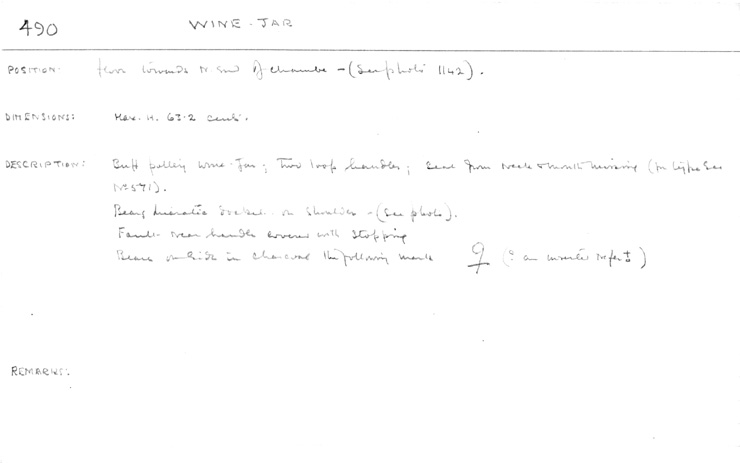 490 WINE-JAR
POSITION: Floor towards N. end of chamber - (See photo 1142).
DIMENSIONS: Max. H. 63.2 cent.
DESCRIPTION: Buff pottery wine-jar; two loop handles; seal from neck & mouth missing (for type see
No 571).
Bears hieratic docket on shoulder - (See photo).
Fault near handle covered with stopping
Bears on side in charcoal the following mark (? an inverted nefer )
REMARKS: